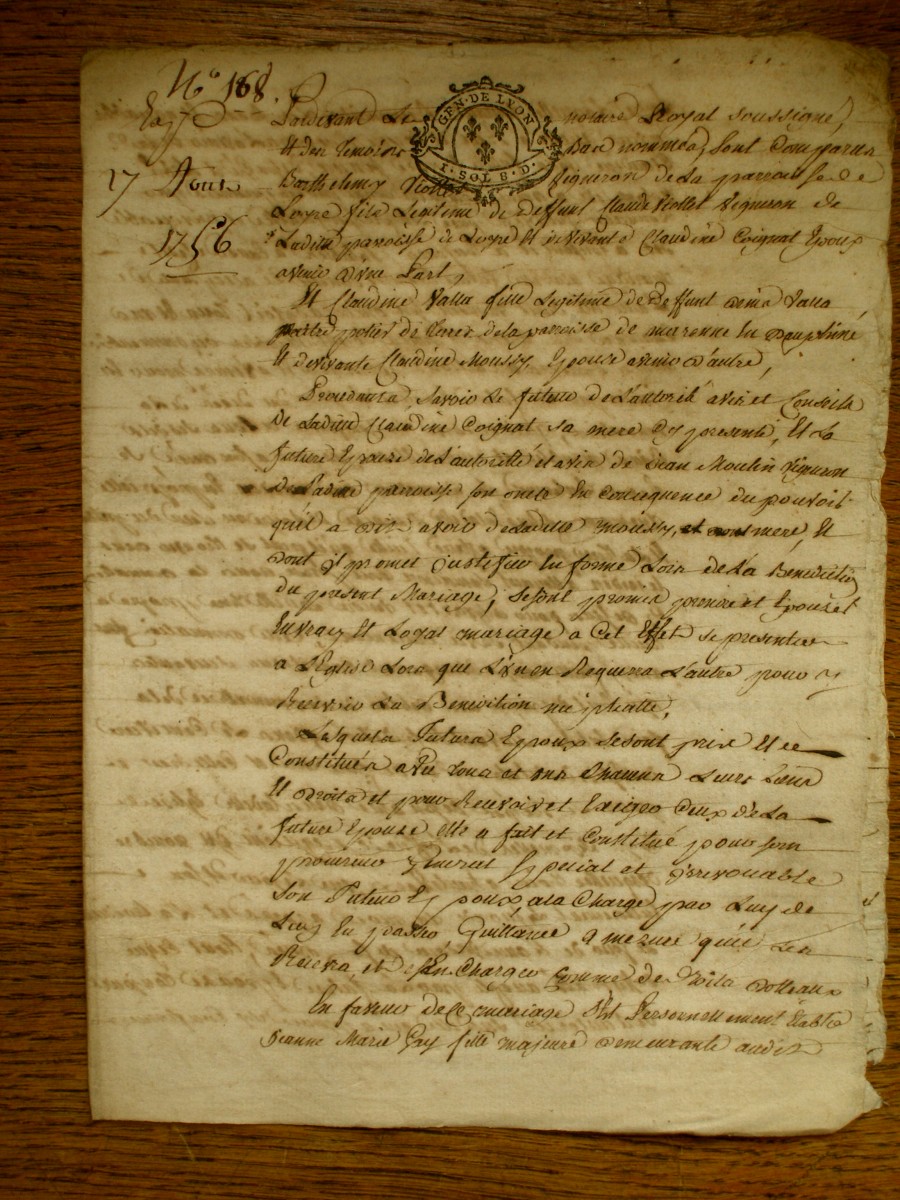 N° 168.
Exp
17 Aout
1756
GEN. DE LYON
1. SOL 8. D.
Pardevant Le notaire Royal soussigné,
Et des temoins Bas nommés, sont Comparus
Barthelemy Viollet Vigneron de La parroisse de
Loyre fils Legitime de Deffunt Claude Viollet Vigneron de
Laditte parroisse de Loyre Et de vivante Claudine Coignat Epoux
avenir d'une Part,
Et Claudine Valla fille Legitime de Deffunt Denis Valla
potier de Terre de la parroisse de en Dauphiné
Et de vivante Claudine Moussy, Epouse avenir d'autre,
Procedants, savoir Le futur de L'autorité avis et Conseils
De Laditte Claudine Coignat sa mere Cy presente, Et La
future Epouse de L'autorité et avis de Jean Moulin Vigneron
De Laditte parroisse son oncle En Consequence du pouvoir
qu'il a dit avoir de Laditte Moussy, mere, Et
dont il promet justifier En forme Lors de La Benediction
du present Mariage, se sont promis prendre et Epouser
En vray Et Loyal mariage a Cet Effet se presenter
a L'Eglise Lors que L'un en Requerra L'autre pour y
Recevoir La Benediction nuptialle,
Lesquels Futurs Epoux se sont pris Et se
Constitués avec tous et uns Chacuns Leurs biens
Et droits et pour Recevoir et Exiger Ceux de La
future Epouse elle a fait et Constitué pour son
procureur General special et irrevocable
son Futur Epoux, a La Charge par Luy de
Luy En passer Quittance a mesure qu'il Les
Recevra, et de s'En Charger Comme de Biens dotteaux
En faveur de Ce mariage s'Est Personnellement Etablie
Jeanne Marie Gay fille majeure demeurante audit